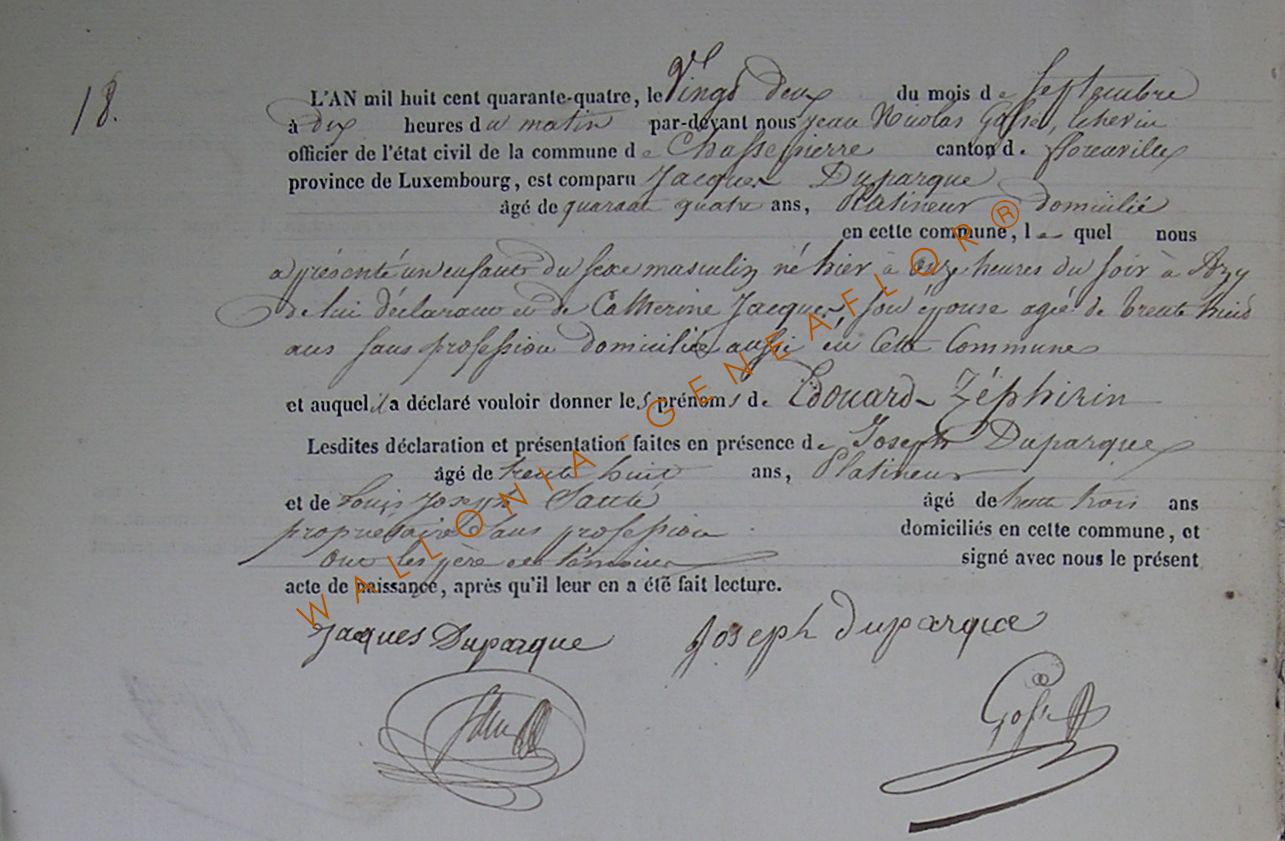 18.
L'AN mil huit cent quarante-quatre, le Vingt deux du mois de Septembre
à dix heures du matin par-devant nous jean Nicolas Echevin
officier de l'état civil de la commune de Chassepierre canton de florenville
province de Luxembourg, est comparu Jacques Duparque
âgé de quarante quatre ans, Platineur domicilié
en cette commune, le quel nous
a présenté un enfant du sexe masculin né hier à onze heures du soir à Azy
de lui déclarant et de Catherine Jacques son épouse agée de trente huit
ans sans profession domiciliée aussi en cette Commune
et auquel il a déclaré vouloir donner les prénoms de Edouard Zéphirin
Lesdites déclaration et présentation faites en présence de Joseph Duparque
âgé de trente huit ans, Platineur
et de Louis Joseph âgé de trente trois ans
propriétaire sans profession domiciliés en cette commune, et
Ont les père et témoins signé avec nous le présent
acte de naissance, après qu'il leur en a été fait lecture.
Jacques Duparque Joseph duparque
WALLONIA - GENEAFLOR®